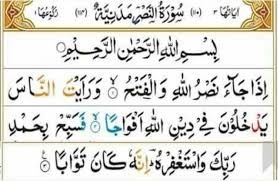 سُوْرَةُ النَّصْرِ مَدَنِيَّةٌ
بِسْمِ اللّٰهِ الرَّحْمٰنِ الرَّحِيْمِ
اِذَا جَآءَ نَصْرُ اللّٰهِ وَ الْفَتْحُ ۙ۱ وَرَاَيْتَ النَّاسَ
يَدْخُلُوْنَ فِيْ دِيْنِ اللّٰهِ اَفْوَاجًا ۙ۲ فَسَبِّحْ بِحَمْدِ
رَبِّكَ وَاسْتَغْفِرْهُ ؔ اِنَّهٗ كَانَ تَوَّابًا ۳